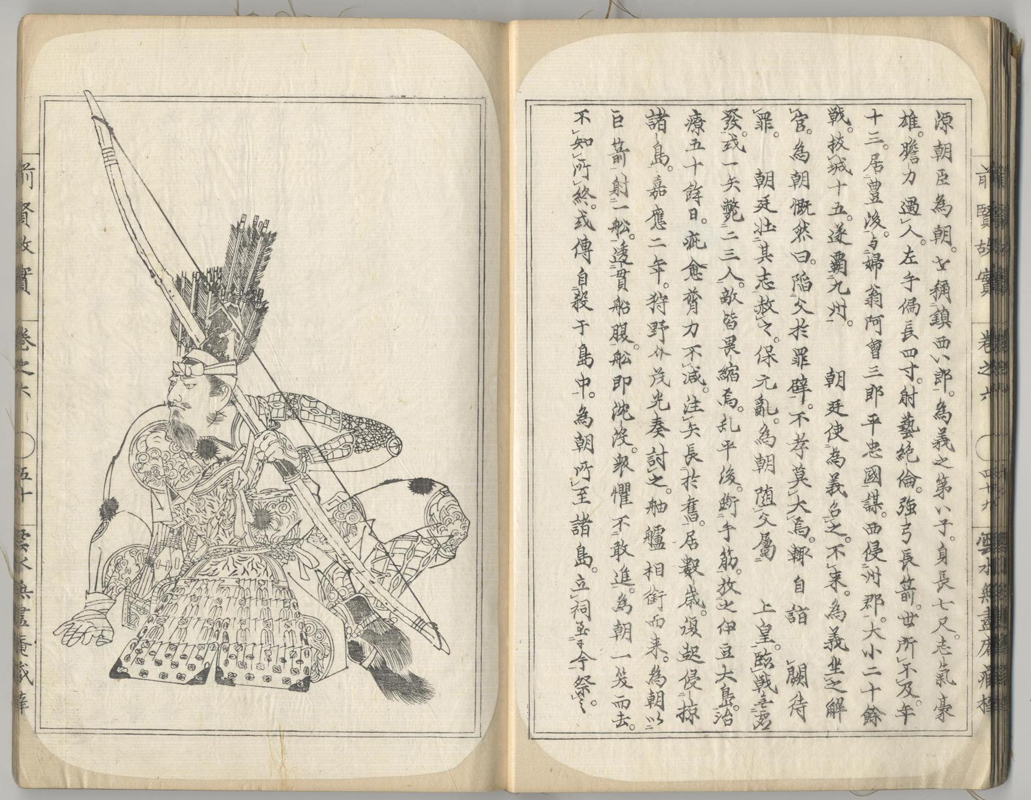 前賢故實 卷之六 〇四十九 雲水無盡庵藏梓
源朝臣為朝。世稱鎮西八郎。為義之第八子。身長七尺。志氣豪
雄。膽力過人。左手偏長四寸。射藝絶倫。強弓長箭。世所不及。年
十三。居豊後。与婦翁阿曾三郎平忠國謀。西侵州郡。大小二十餘
戦。拔城十五。遂覇九州。 朝廷使為義召之。不来。為義坐之解
官。為朝慨然曰。陷父於罪辟。不孝莫大焉。輙自詣 闕待
罪。 朝廷壮其志赦之。保元亂。為朝隨父屬 上皇。臨戦無虚
發。或一矢斃二三人。敵皆畏縮焉。乱平後。断手筋。放之伊豆大島。治
療五十餘日。疵愈膂力不減。注矢長於舊。居數歳。復起侵掠
諸島。嘉應二年。狩野介茂光奏討之。舳艫相銜而来。為朝以
巨箭射一船。透貫船腹。船即沈没。衆懼不敢進。為朝一笑而去。
不知所終。或傳自殺于島中。為朝所至諸島。立祠至于今祭之。
前賢故實 卷之六 〇五十 雲水無盡庵藏梓